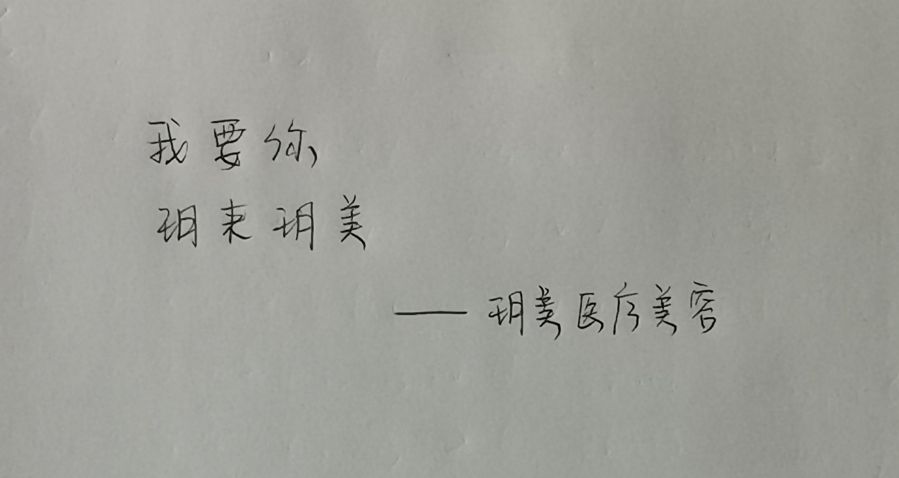 我要你,
玥来玥美
——玥美医疗美容